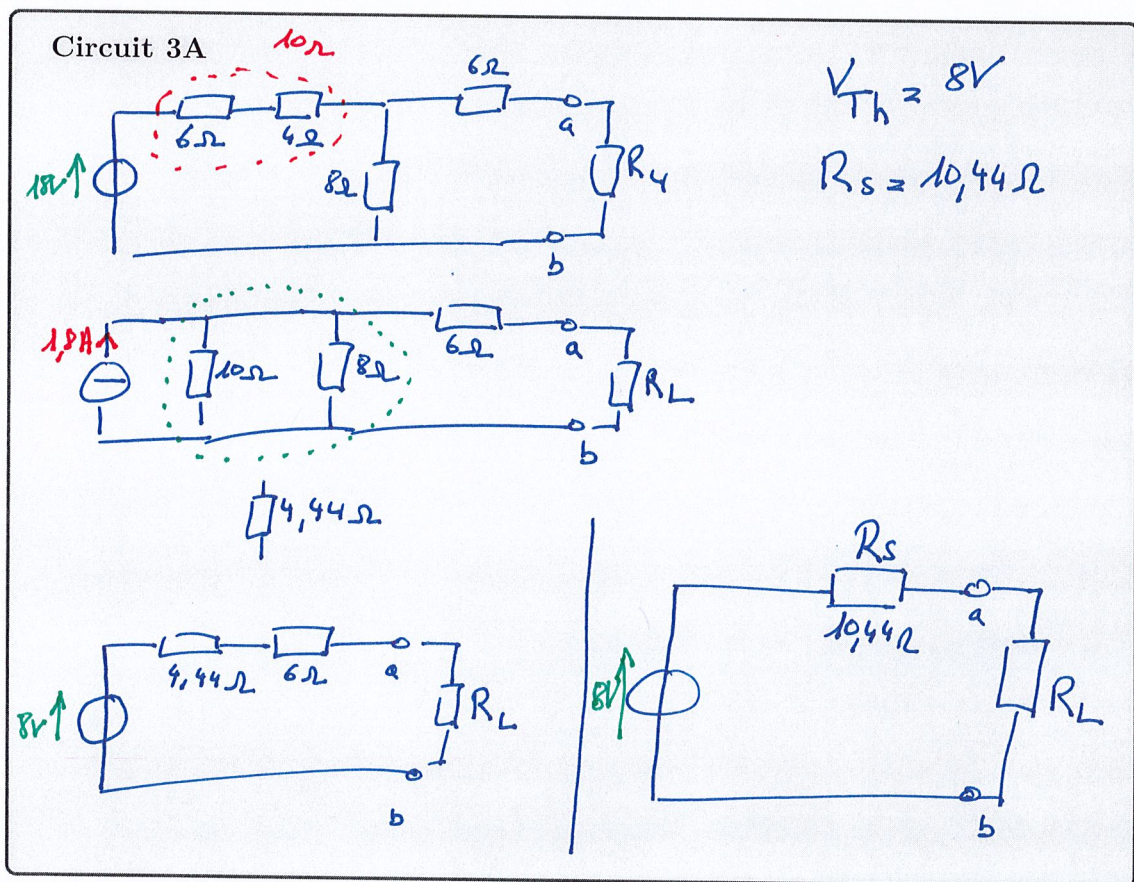 Circuit 3A
10Ω
6Ω
V_Th = 8V
6Ω
4Ω
a
18V
8Ω
R_4
R_S = 10,44Ω
b
1,8A
10Ω
8Ω
6Ω
a
R_L
b
4,44Ω
4,44Ω
6Ω
a
8V
R_L
b
R_S
10,44Ω
a
8V
R_L
b